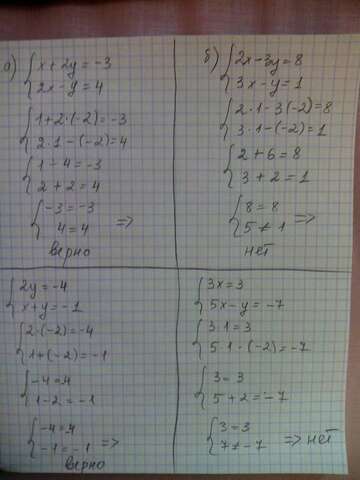 а) { x + 2y = -3
2x - y = 4
{ 1 + 2·(-2) = -3
2·1 - (-2) = 4
{ 1 - 4 = -3
2 + 2 = 4
{ -3 = -3
4 = 4 =>
верно
б) { 2x - 3y = 8
3x - y = 1
{ 2·1 - 3(-2) = 8
3·1 - (-2) = 1
{ 2 + 6 = 8
3 + 2 = 1
{ 8 = 8
5 ≠ 1 =>
нет
{ 2y = -4
x + y = -1
{ 2·(-2) = -4
1 + (-2) = -1
{ -4 = 4
1 - 2 = -1
{ -4 = 4
-1 = -1 =>
верно
{ 3x = 3
5x - y = -7
{ 3·1 = 3
5·1 - (-2) = -7
{ 3 = 3
5 + 2 = -7
{ 3 = 3
7 ≠ -7 => нет